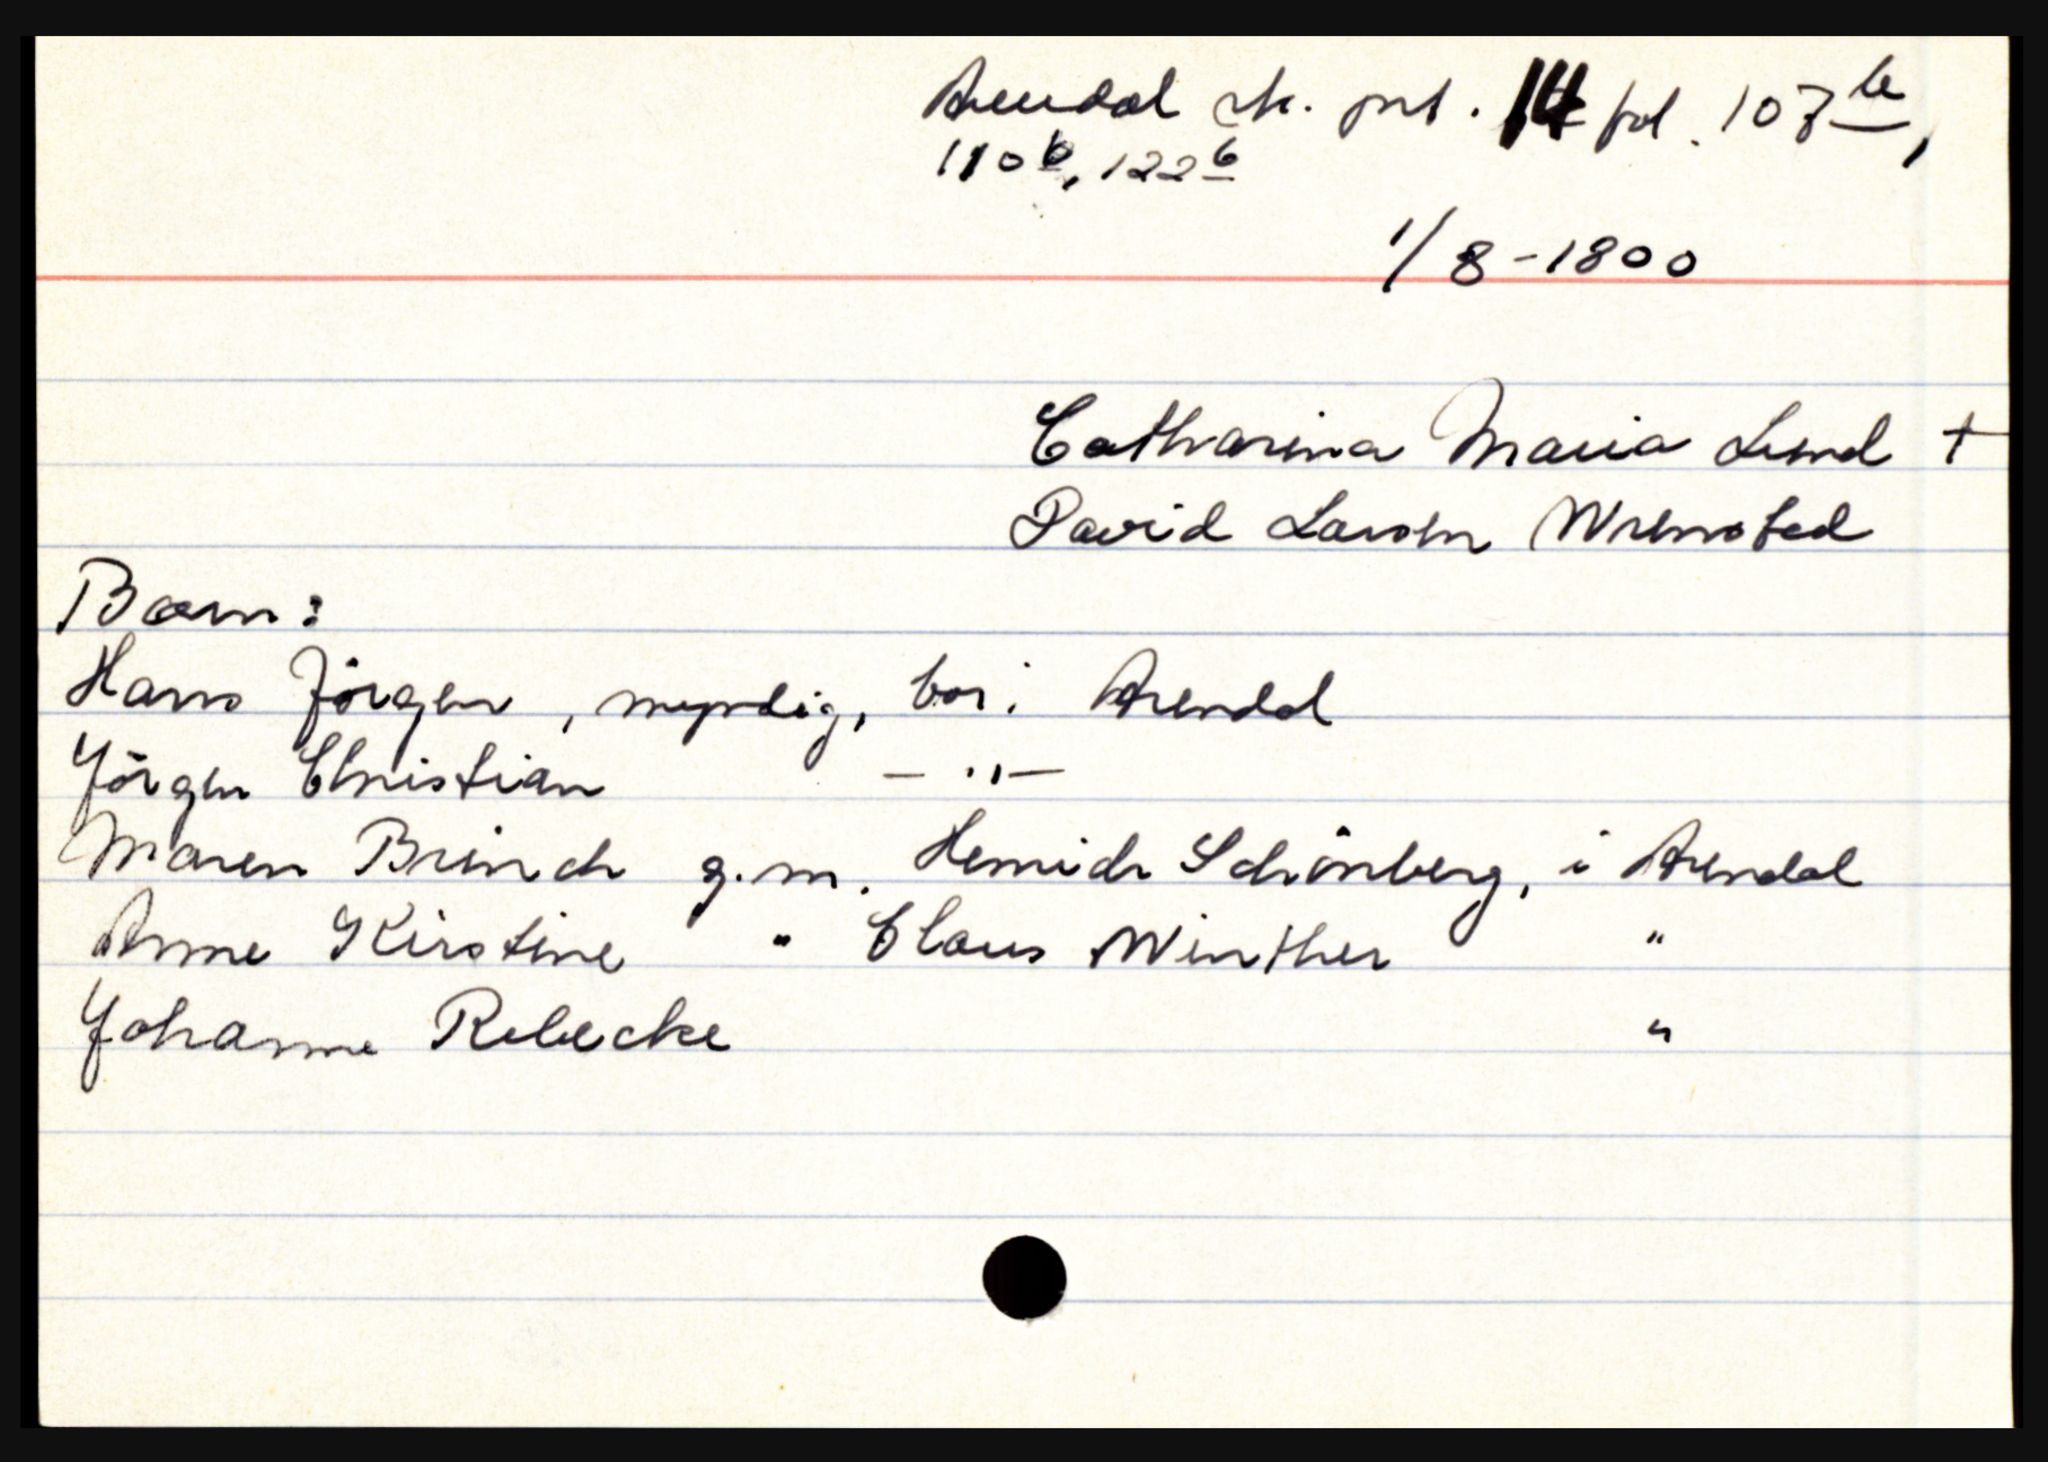 Arendal sk. prt. 14 fol. 107 b,
110 b, 122 b
1/8-1800
Catharina Maria Lund †
David Larsen Wrensted
Børn:
Hans Jörgen, myndig, bor i Arendal
Jörgen Christian — " —
Maren Brinch g.m. Henrich Schönberg, i Arendal
Anne Kirstine " Claus Winther "
Johanne Rebecke "